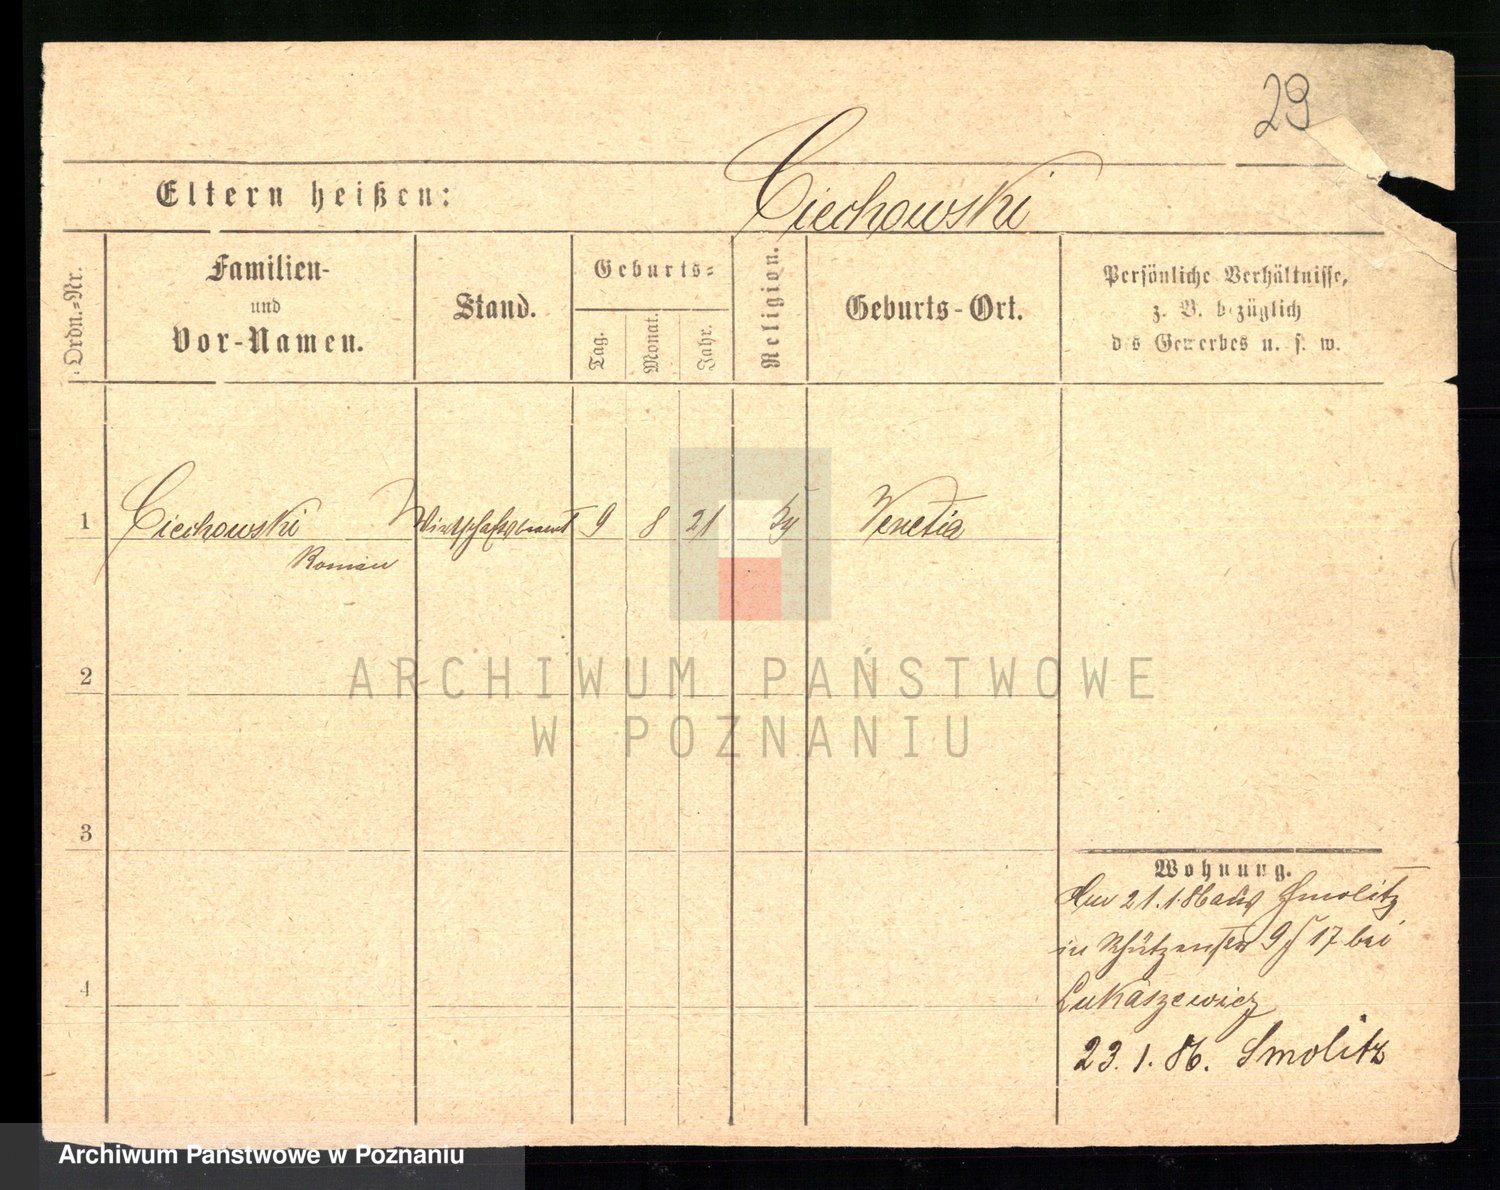 29
Eltern heißen: Ciechowski
Ordn.-Nr.
Familien-
und
Vor-Namen.
Stand.
Geburts-
Tag.
Monat.
Jahr.
Religion.
Geburts-Ort.
Persönliche Verhältnisse,
z. B. bezüglich
des Gewerbes u. s. w.
1 Ciechowski Wirtschaftsbeamt 9 8 21 Venetia
Roman
2
3
4
Wohnung.
Am 21.1.86 aus Smolitz
in Schützenstr 9 17 bei
Lukaszewicz
23.1.86. Smolitz
ARCHIWUM PAŃSTWOWE
W POZNANIU
Archiwum Państwowe w Poznaniu